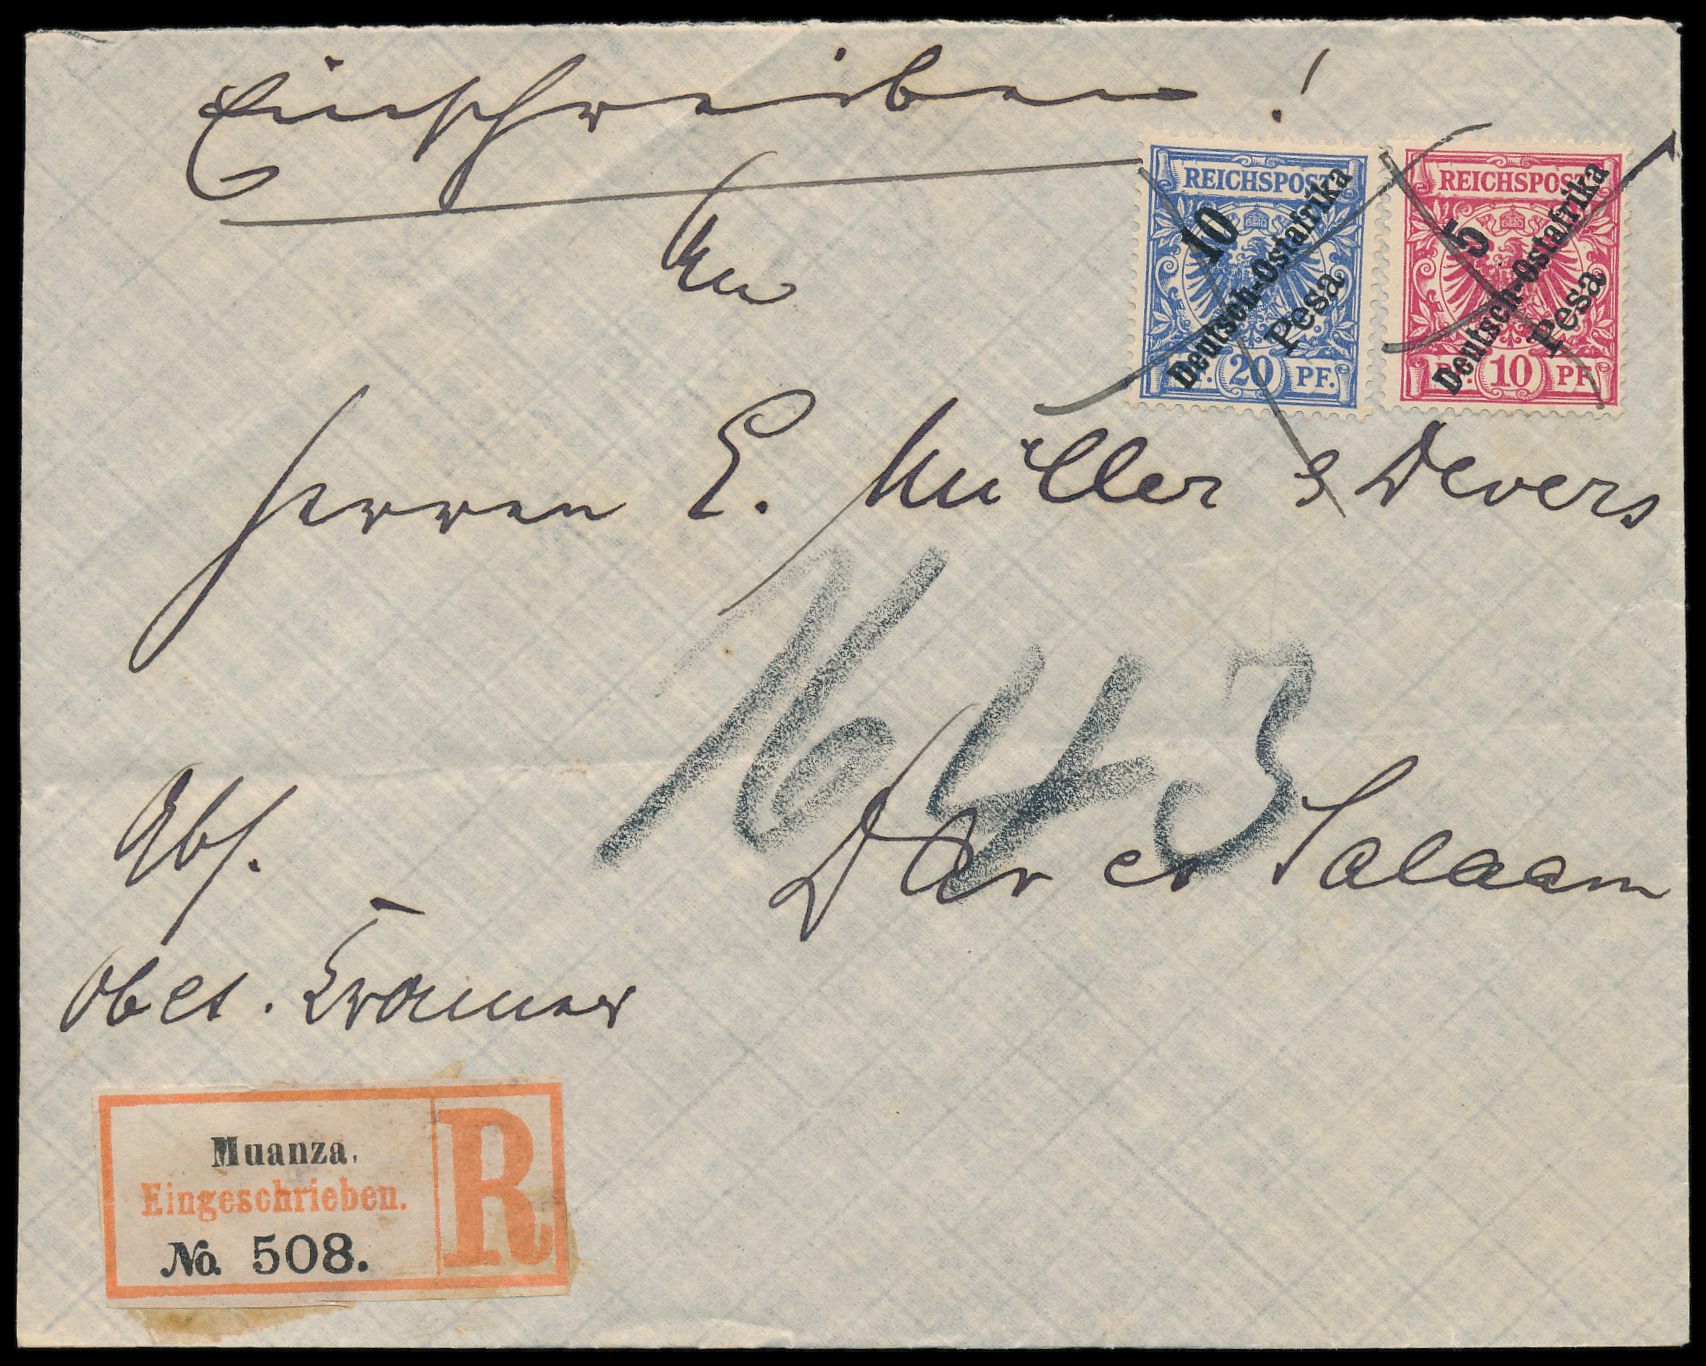 Einschreiben!
An
REICHSPOST
10
Deutsch-Ostafrika
Pesa
PF. 20 PF.
REICHSPOST
5
Deutsch-Ostafrika
Pesa
PF. 10 PF.
Herren E. Müller & Devers
1643
Dar es Salaam
Abs.
Krämer
Muanza.
Eingeschrieben.
No. 508.
R